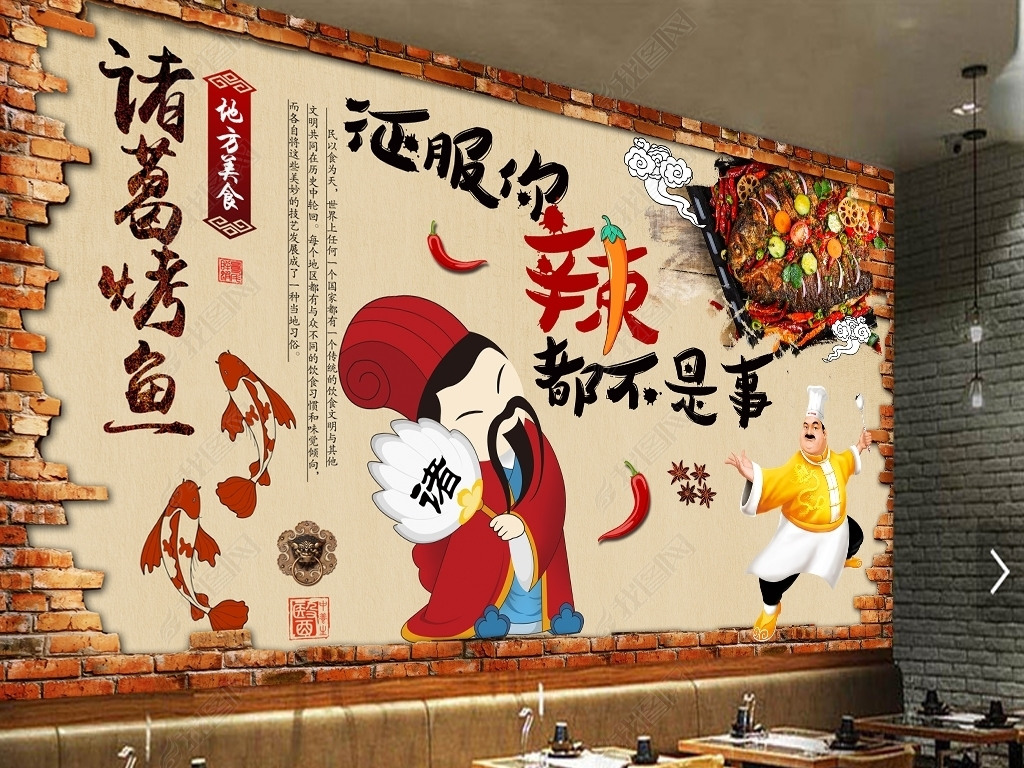 诸葛烤鱼
地方美食
民以食为天，世界上任何一个国家都有一个传统的饮食文明与其他
文明共同在历史中轮回。每个地区都有与众不同的饮食习惯和味觉倾向，
而各自将这些美妙的技艺发展成了一种当地习俗。
征服你
辣
都不是事
诸